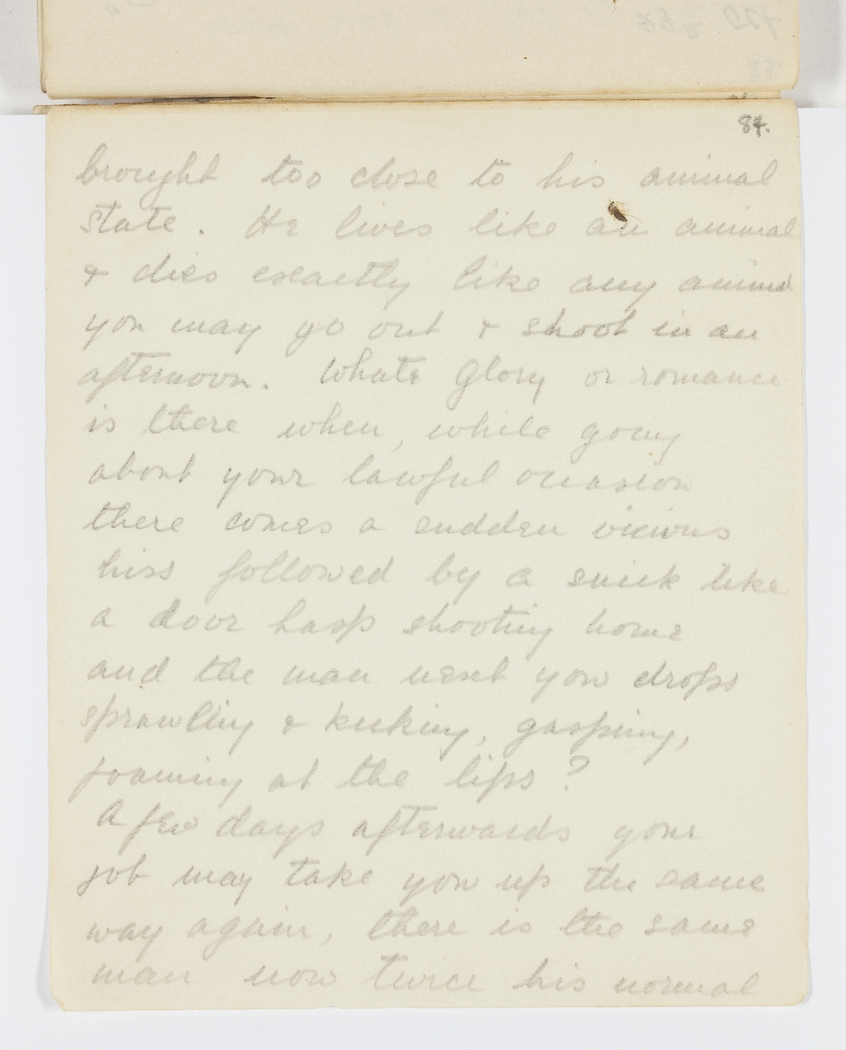 84.
brought too close to his animal
state. He lives like an animal
& dies exactly like any animal
you may go out & shoot in an
afternoon. Whats Glory or romance
is there when, while going
about your lawful occasion
there comes a sudden vicious
hiss followed by a snick like
a door hasp shooting home
and the man next you drops
sprawling & kicking, gasping,
foaming at the lips?
A few days afterwards your
job may take you up the same
way again, there is the same
man now twice his normal